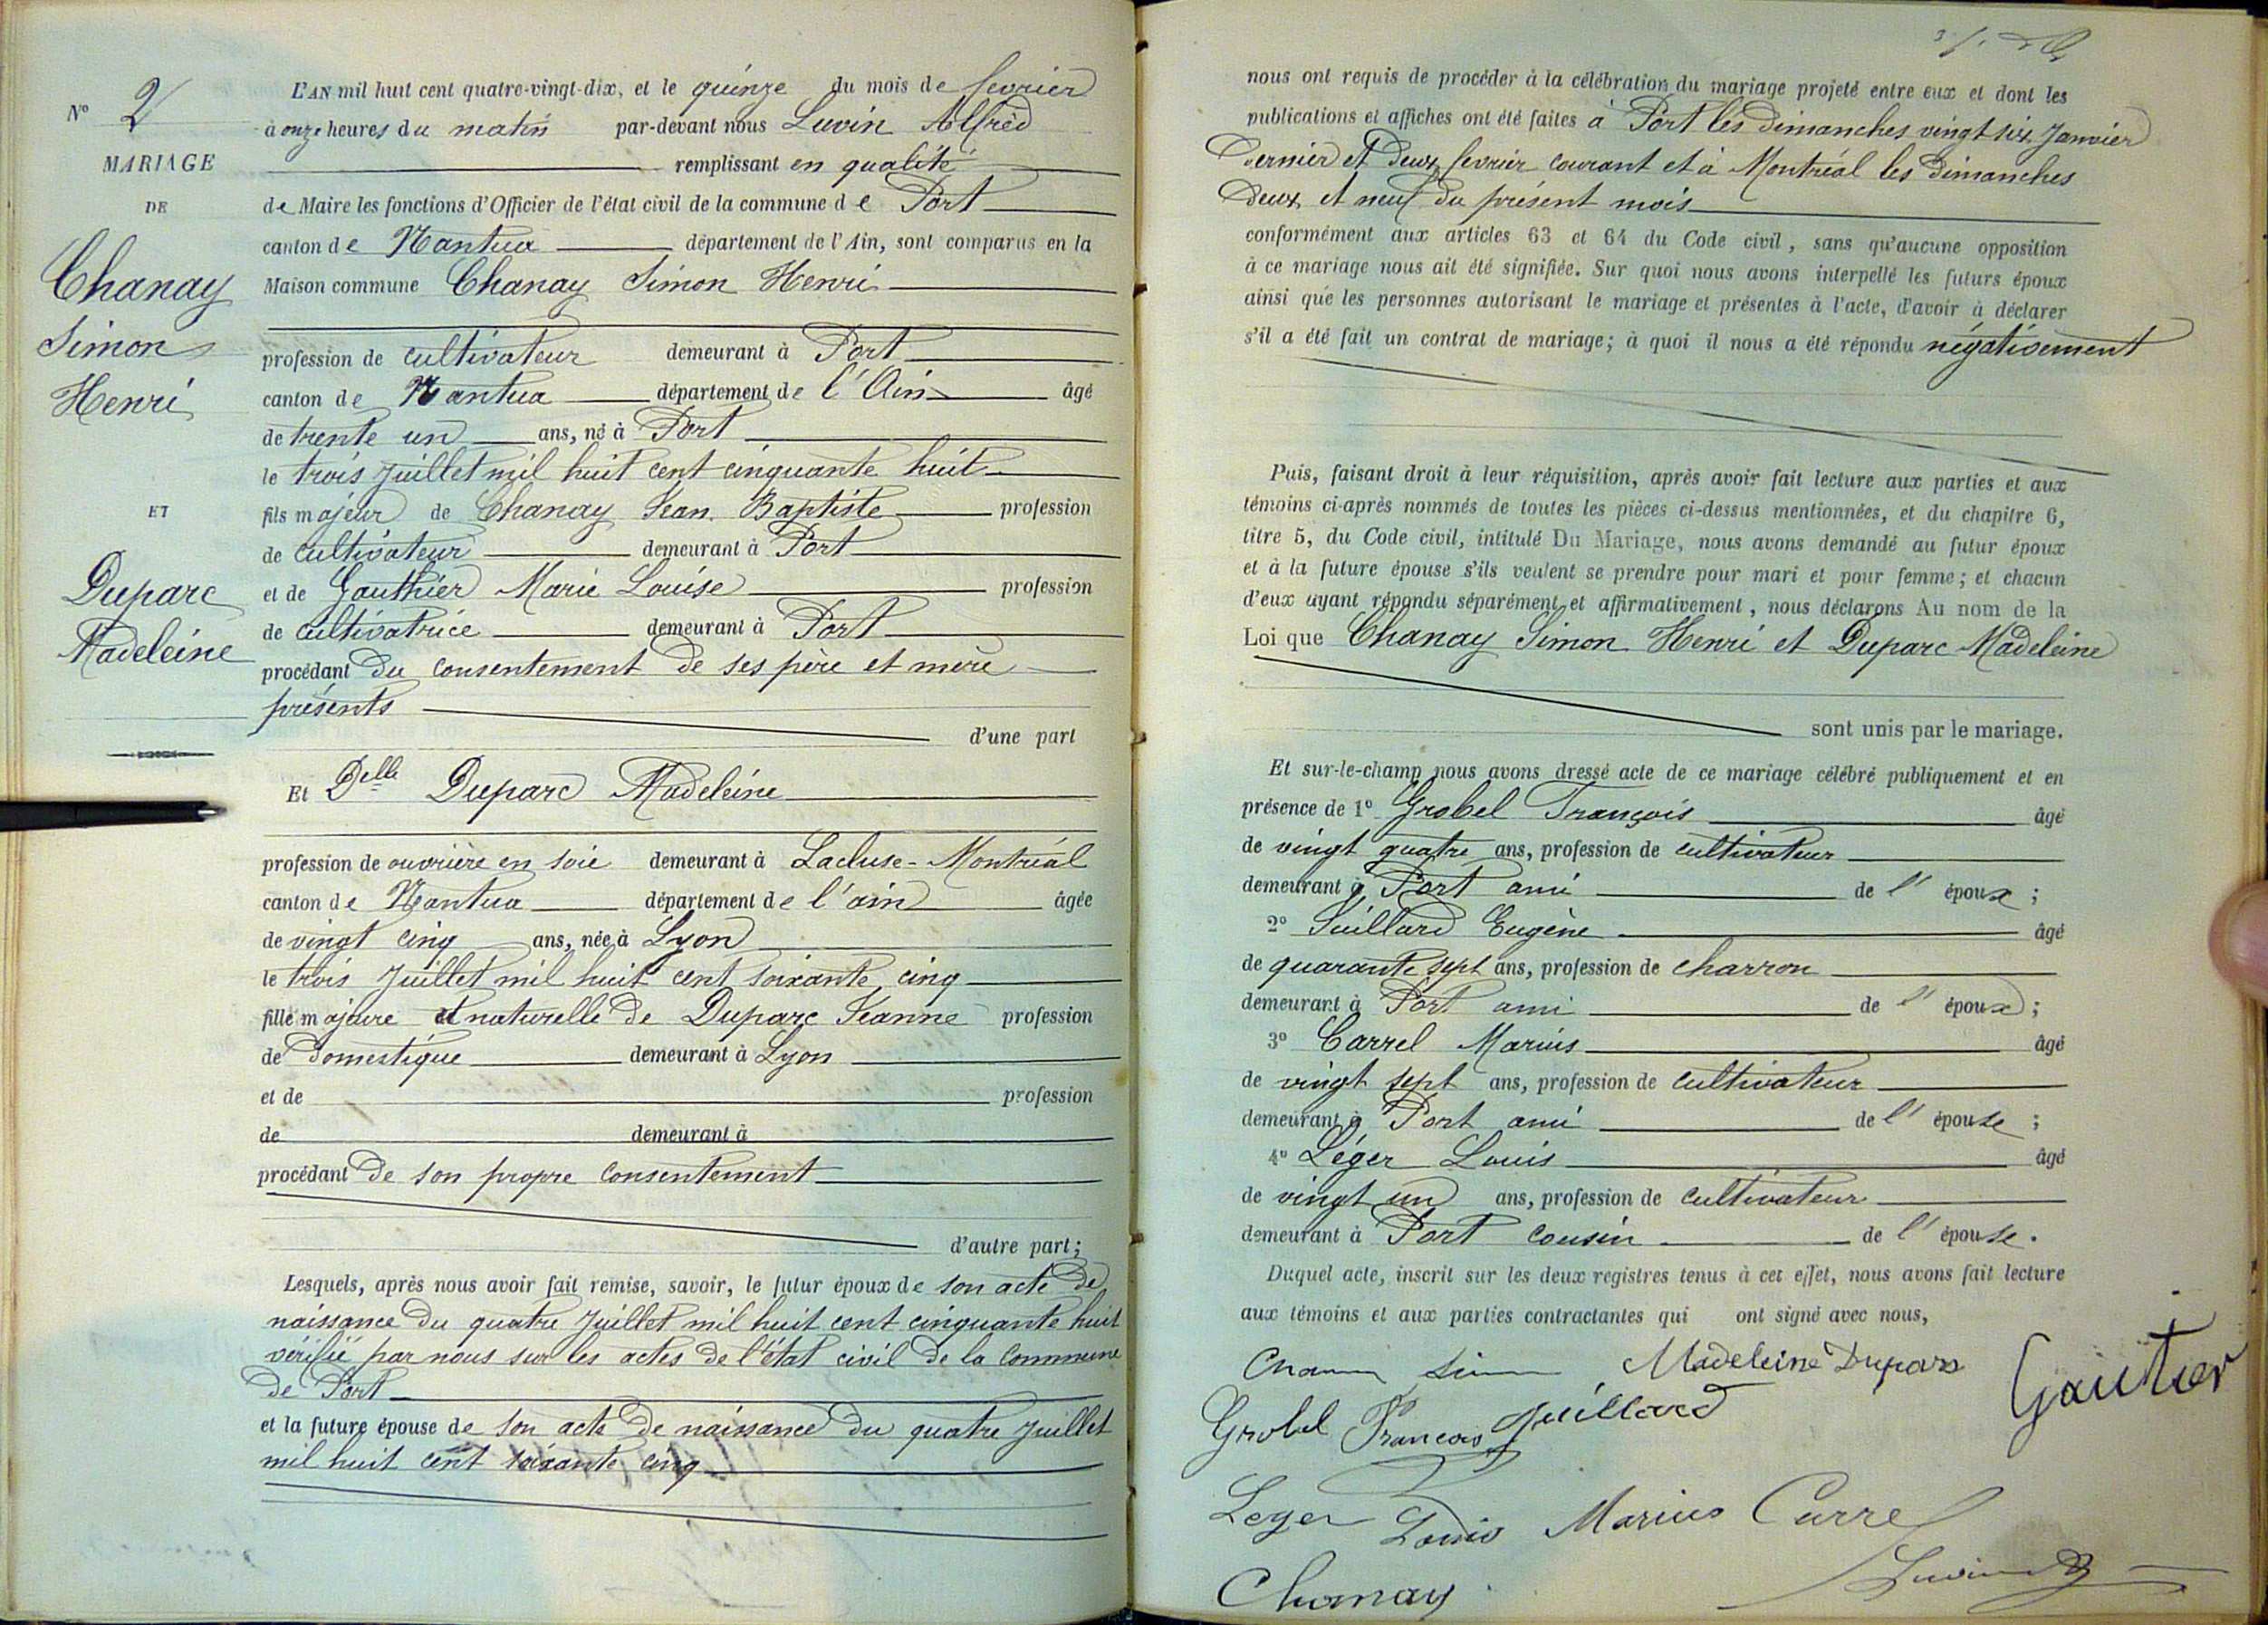 N° 2
MARIAGE
DE
Chanay
Simon
Henri
ET
Duparc
Madeleine
L'AN mil huit cent quatre-vingt-dix, et le quinze du mois de fevrier
à onze heures du matin par-devant nous Luvin Alfred
remplissant en qualité
de Maire les fonctions d'Officier de l'état civil de la commune de Port
canton de Nantua département de l'Ain, sont comparus en la
Maison commune Chanay Simon Henri
profession de cultivateur demeurant à Port
canton de Nantua département de l'Ain âgé
de trente un ans, né à Port
le trois juillet mil huit cent cinquante huit
fils majeur de Chanay Jean Baptiste profession
de cultivateur demeurant à Port
et de Gauthier Marie Louise profession
de cultivatrice demeurant à Port
procédant du consentement de ses père et mère
présents
d'une part
Et Delle Duparc Madeleine
profession de ouvrière en soie demeurant à Lacluse-Montréal
canton de Nantua département de l'ain âgée
de vingt cinq ans, née à Lyon
le trois juillet mil huit cent soixante cinq
fille majeure et naturelle de Duparc Jeanne profession
de domestique demeurant à Lyon
et de profession
de demeurant à
procédant de son propre consentement
d'autre part;
Lesquels, après nous avoir fait remise, savoir, le futur époux de son acte de
naissance du quatre juillet mil huit cent cinquante huit
vérifié par nous sur les actes de l'état civil de la commune
de Port
et la future épouse de son acte de naissance du quatre juillet
mil huit cent soixante cinq
nous ont requis de procéder à la célébration du mariage projeté entre eux et dont les
publications et affiches ont été faites à Port les dimanches vingt six Janvier
dernier et deux fevrier courant et à Montréal les dimanches
deux et neuf du présent mois
conformément aux articles 63 et 64 du Code civil, sans qu'aucune opposition
à ce mariage nous ait été signifiée. Sur quoi nous avons interpellé les futurs époux
ainsi que les personnes autorisant le mariage et présentes à l'acte, d'avoir à déclarer
s'il a été fait un contrat de mariage; à quoi il nous a été répondu négativement
Puis, faisant droit à leur réquisition, après avoir fait lecture aux parties et aux
témoins ci-après nommés de toutes les pièces ci-dessus mentionnées, et du chapitre 6,
titre 5, du Code civil, intitulé Du Mariage, nous avons demandé au futur époux
et à la future épouse s'ils veulent se prendre pour mari et pour femme; et chacun
d'eux ayant répondu séparément et affirmativement, nous déclarons Au nom de la
Loi que Chanay Simon Henri et Duparc Madeleine
sont unis par le mariage.
Et sur-le-champ nous avons dressé acte de ce mariage célébré publiquement et en
présence de 1° Grobel François âgé
de vingt quatre ans, profession de cultivateur
demeurant à Port ami de l'époux;
2° Juillard Eugène âgé
de quarante sept ans, profession de charron
demeurant à Port ami de l'époux;
3° Carrel Marius âgé
de vingt sept ans, profession de cultivateur
demeurant à Port ami de l'épouse;
4° Léger Louis âgé
de vingt un ans, profession de cultivateur
demeurant à Port cousin de l'épouse.
Duquel acte, inscrit sur les deux registres tenus à cet effet, nous avons fait lecture
aux témoins et aux parties contractantes qui ont signé avec nous,
Madeleine Duparc
Gautier
Grobel François Juillard
Leger Louis Marius Carrel
Luvin
Chanay